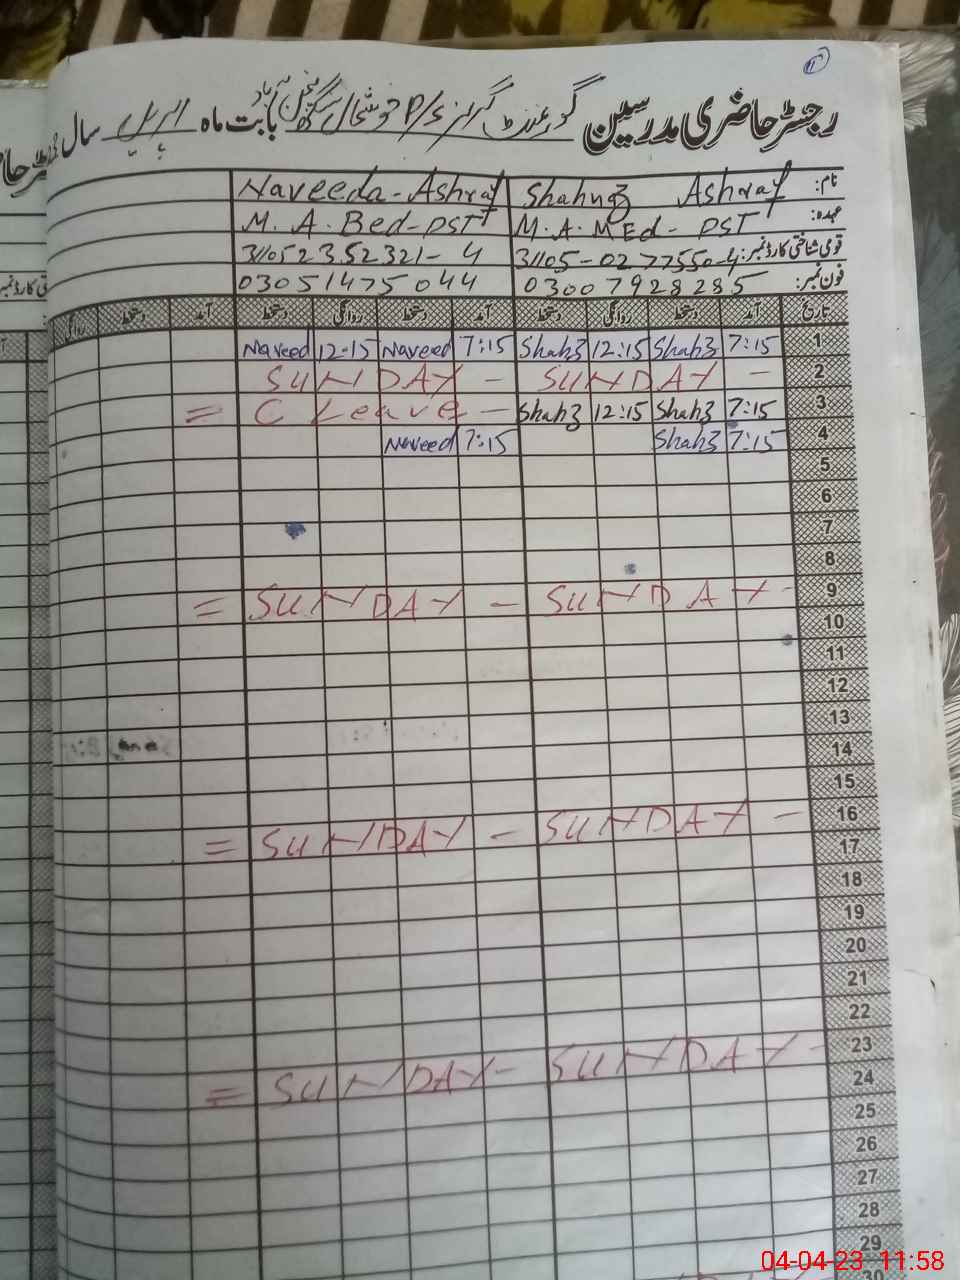 رجسٹر حاضری مدرسین گورنمنٹ گرلز P/S خوشحال سنگھ بابت ماہ اپریل سال
نام: Shahnaz Ashraf Naveeda-Ashraf
عہدہ: M.A.MEd- PST M.A.Bed-PST
قومی شناختی کارڈ نمبر: 31105-0277550-4 311052352321-4
فون نمبر: 03007928285 03051475044
تاریخ آمد دستخط روانگی دستخط آمد دستخط روانگی دستخط آمد دستخط روانگی
1 7:15 Shahz 12:15 Shahz 7:15 Naveed 12-15 Naveed
2 SUNDAY - SUNDAY -
3 7:15 Shahz 12:15 Shahz C Leave - =
4 7:15 Shahz 7:15 Naveed
5
6
7
8
9 SUNDAY - SUNDAY - =
10
11
12
13
14
15
16 SUNDAY - SUNDAY - =
17
18
19
20
21
22
23 SUNDAY - SUNDAY - =
24
25
26
27
28
29
30
04-04-23 11:58